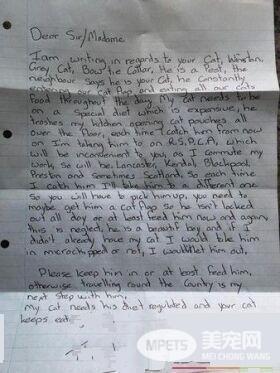 Dear Sir/Madame
I am writing in regards to your Cat, Winston,
Grey Cat, Bow tie Collar, He is a Pest, the
neighbour Says he is your Cat, he Constantly
entering our Cat flap and eating all our cats
food throughout the day. My cat needs to be
on a Special diet which is expensive, he
trashes my kitchen opening cat pouches all
over the floor, each time I catch him from now
on I'm taking him to an R.S.P.C.A, which
will be inconvenient to you, as I commute my
work, so will be Lancaster, Kendal, Blackpool,
Preston and sometimes Scotland, so each time
I catch him I'll take him to a different one
So you will have to pick him up, you need to
maybe get him a cat flap so he isn't locked
out all day or at least feed him now and again,
this is neglect, he is a beautiful boy and if I
didn't already have my cat I would take him
in microchipped or not, I wouldn't let him out.
Please keep him in or at least feed him,
otherwise travelling round the Country is my
next step with him,
My cat needs his diet regulated and your cat
keeps eat
MPETS 美宠网
MEI CHONG WANG